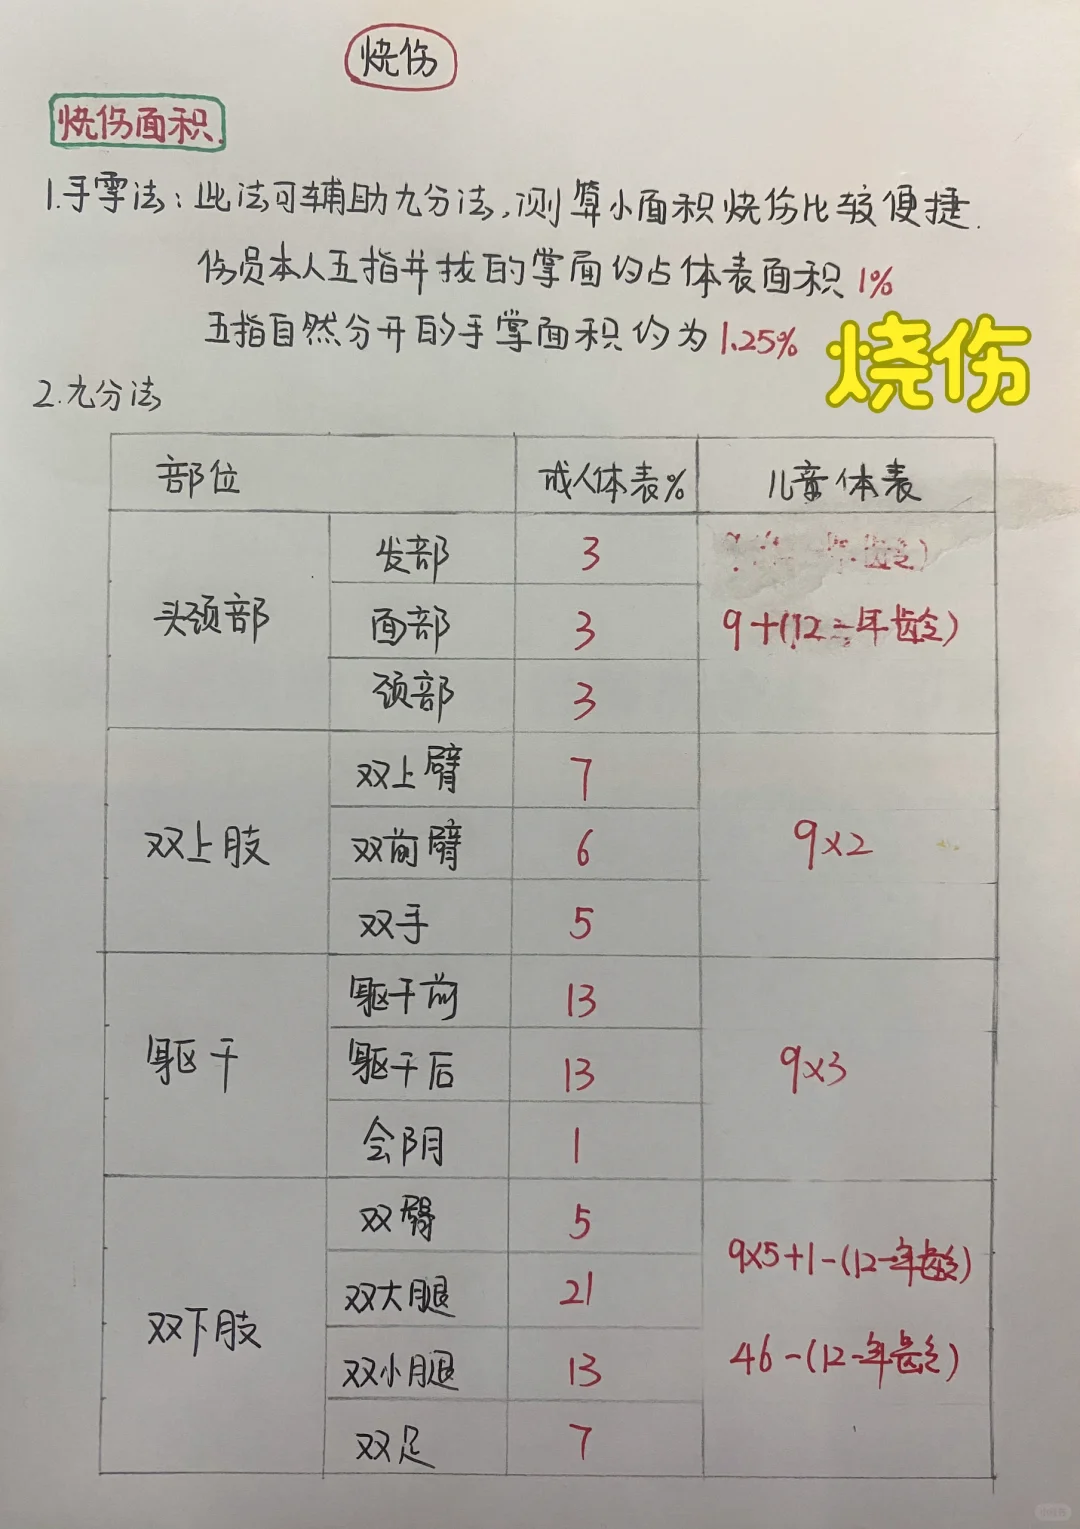 烧伤
烧伤面积
1.手掌法：此法可辅助九分法，测算小面积烧伤比较便捷.
伤员本人五指并拢的掌面约占体表面积1%
五指自然分开的手掌面积约为1.25%
烧伤
2.九分法
部位 成人体表% 儿童体表
头颈部 发部 3
面部 3 9+(12-年龄)
颈部 3
双上肢 双上臂 7
双前臂 6 9×2
双手 5
躯干 躯干前 13
躯干后 13 9×3
会阴 1
双下肢 双臀 5
双大腿 21 9×5+1-(12-年龄)
双小腿 13 46-(12-年龄)
双足 7